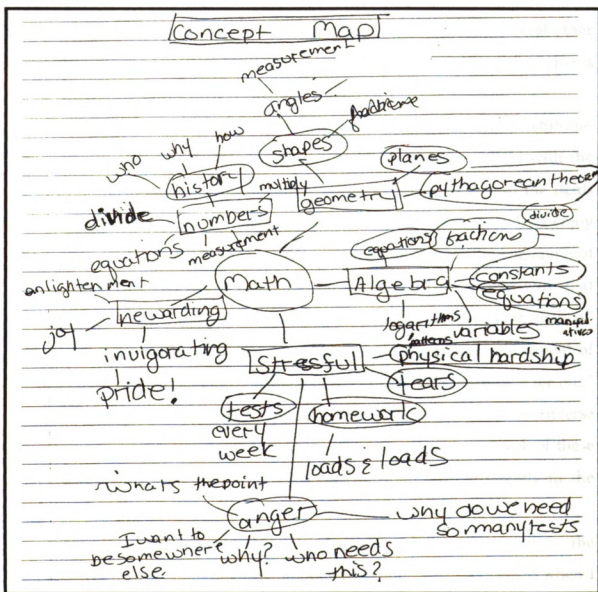 Concept Map
measurement
angles
shapes
who
why
how
history
planes
multiply
geometry
pythagorean theorem
divide
numbers
divide
equations
measurement
equations
fractions
enlightenment
Math
Algebra
constants
equations
rewarding
joy
logarithms
patterns
variables
manipul-
atives
invigorating
Stressful
physical hardship
pride!
tears
tests
homework
every
week
loads & loads
whats the point
anger
why do we need
so many tests
I want to
be somewhere
else.
why?
who needs
this?